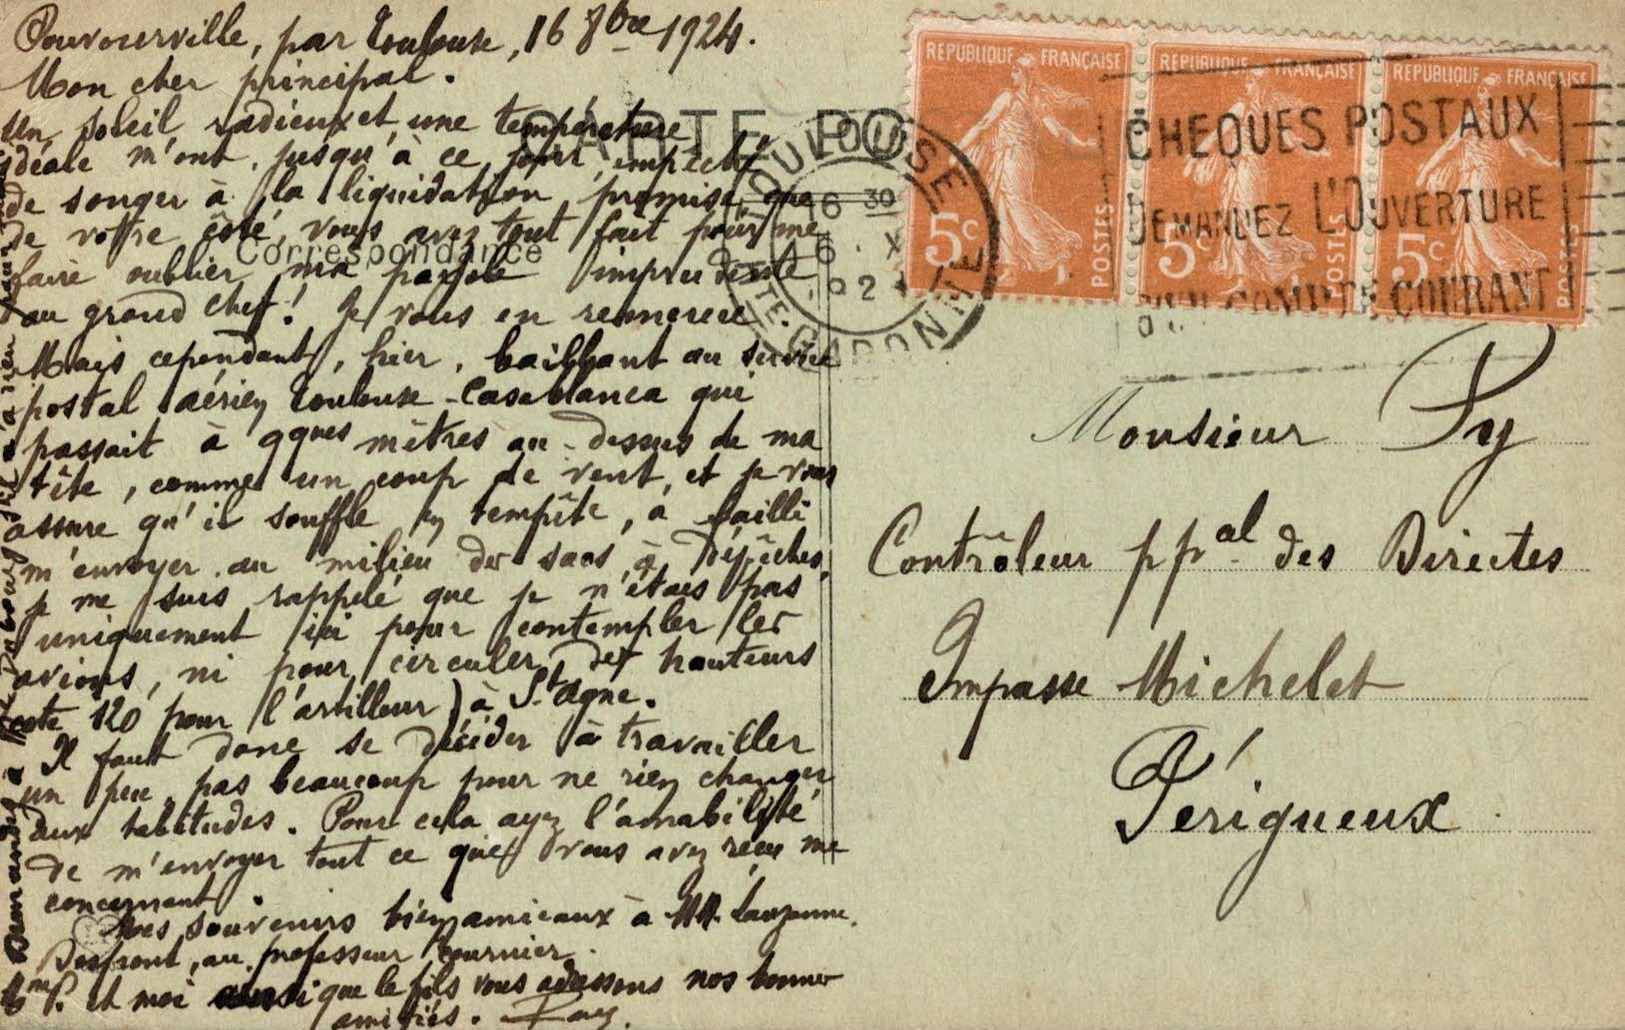 Pouvourville, par Toulouse, 16 8bre 1924.
Mon cher principal.
Un soleil radieux et une température
idéale m'ont, jusqu'à ce jour, empêché
de songer à la liquidation promise, que
de votre côté, vous avez tout fait pour me
faire oublier, ma parole imprudente
au grand chef! Je vous en remercie.
Mais cependant, hier, baillant au service
postal aérien Toulouse-Casablanca qui
passait à qques mètres au-dessus de ma
tête, comme un coup de vent, et je vous
assure qu'il souffle en tempête, a failli
m'envoyer au milieu des sacs à dépêches,
je me suis rappelé que je n'étais pas
uniquement ici pour contempler les
avions, ni pour circuler des hauteurs
cote 120 pour l'artilleur) à St Agne.
Il faut donc se décider à travailler
un peu, pas beaucoup pour ne rien changer
aux habitudes. Pour cela ayez l'amabilité
de m'envoyer tout ce que vous avez reçu me
concernant.
Mes souvenirs bien amicaux à MM. Lauzanne,
Desfront, au professeur Fournier.
Mme P. et moi ainsi que le fils vous adressons nos bonnes
amitiés.
Demandez à Dubourg s'il a rien pour moi
CARTE PO
Correspondance
TOULOUSE
16 30
16 . X
HTE GARONNE
REPUBLIQUE FRANÇAISE
5c
POSTES
REPUBLIQUE FRANÇAISE
5c
POSTES
REPUBLIQUE FRANÇAISE
5c
POSTES
CHEQUES POSTAUX
DEMANDEZ L'OUVERTURE
D'UN COMPTE COURANT
Monsieur Py
Contrôleur ppal des Directes
Impasse Michelet
Périgueux